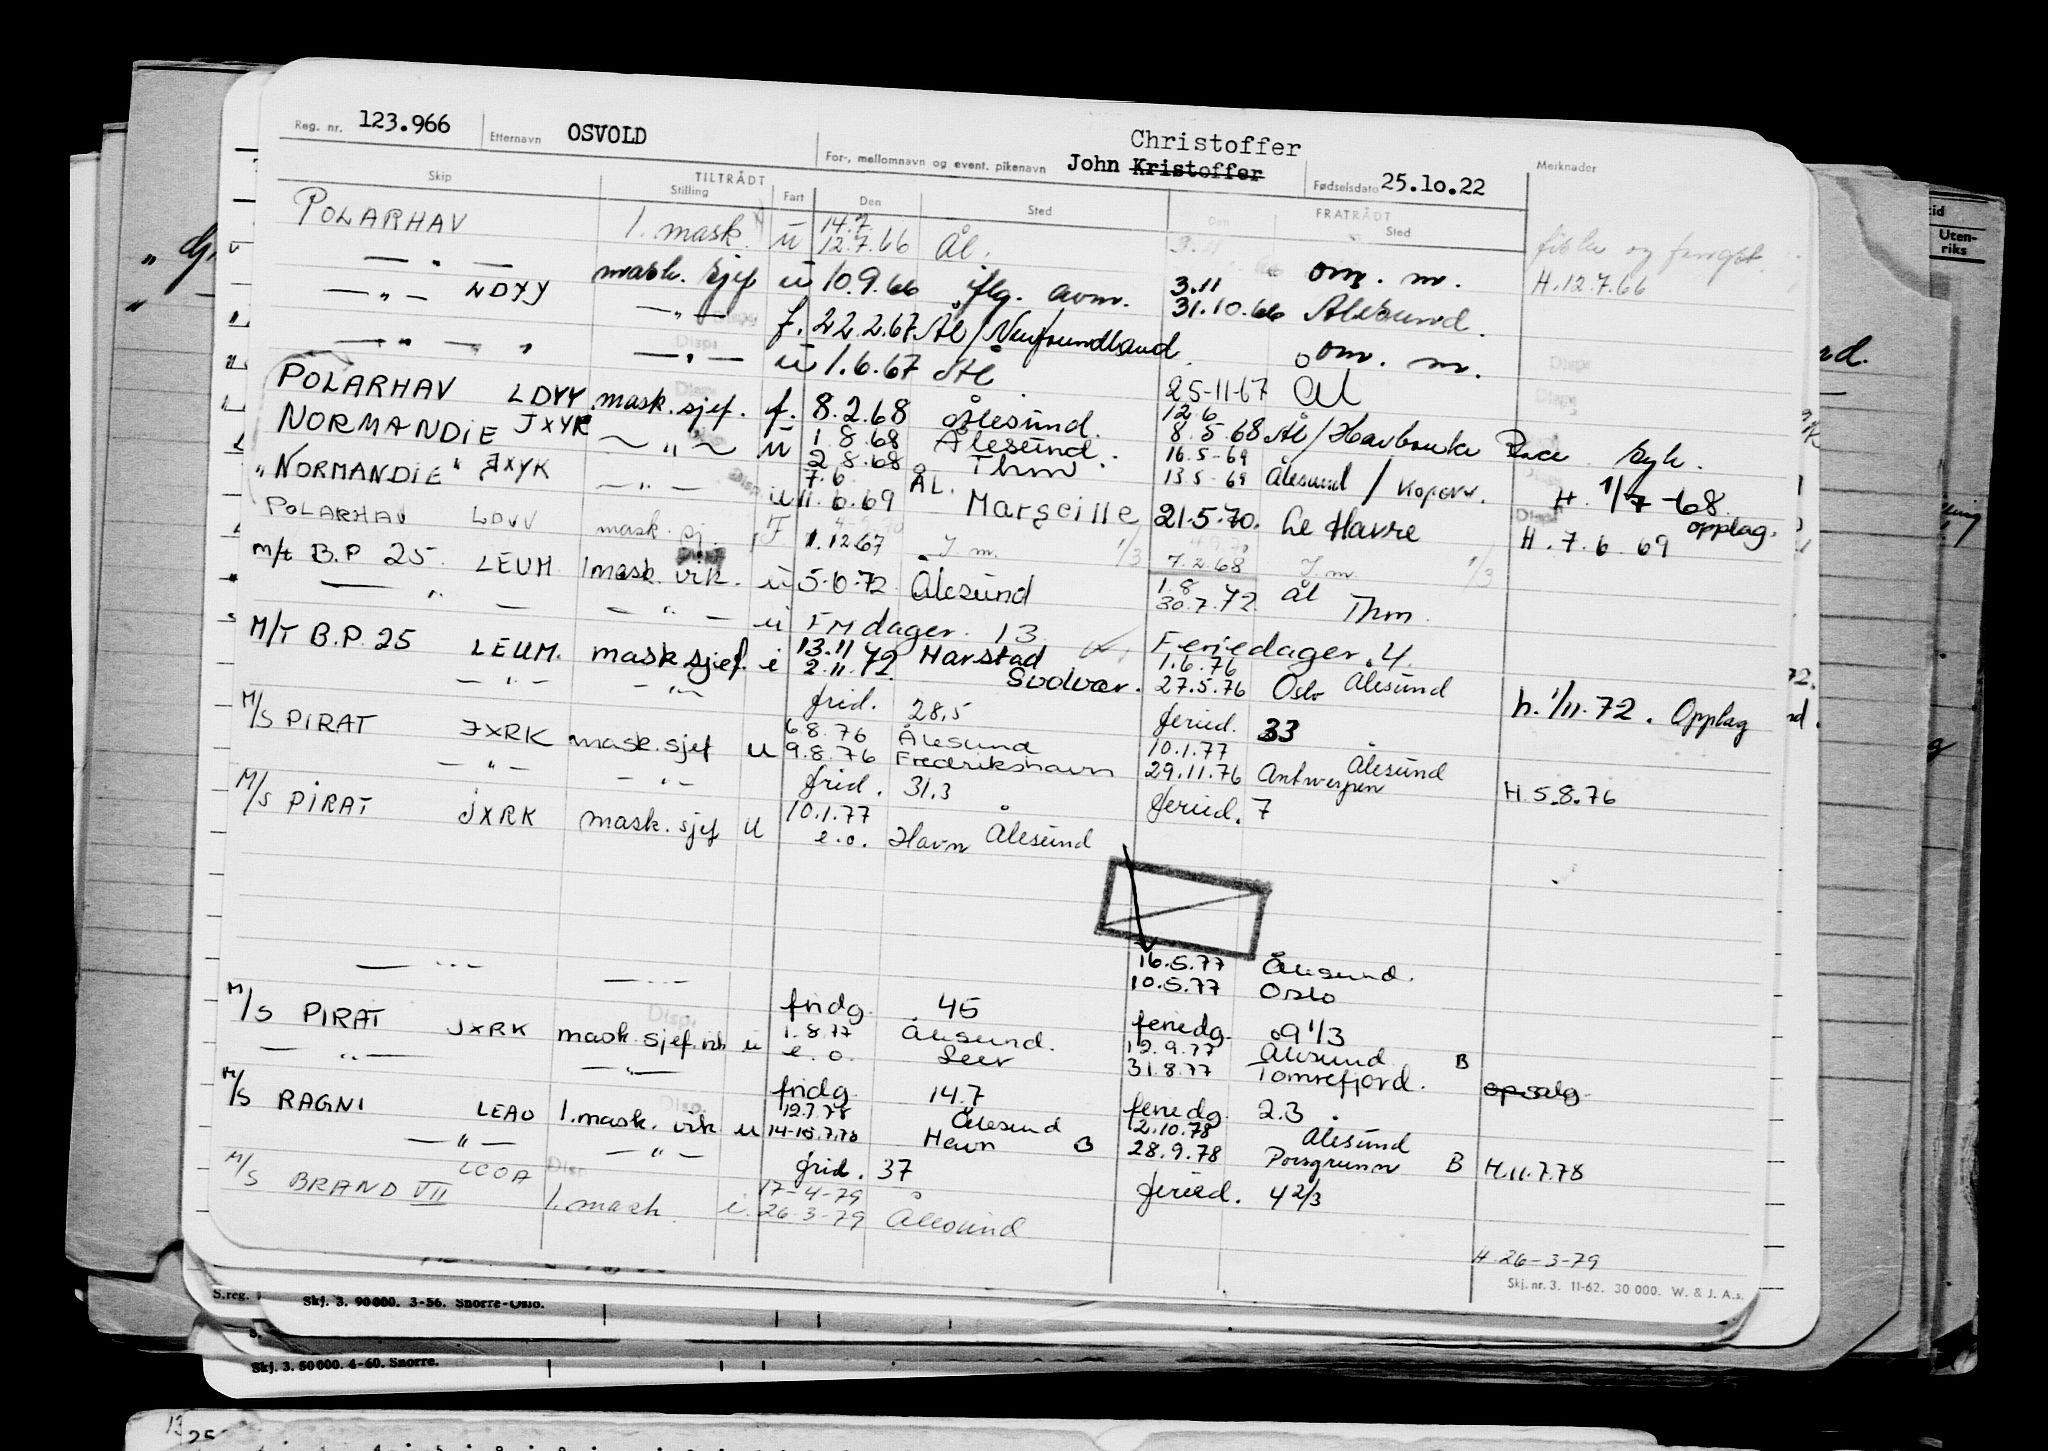 Reg. nr. 123.966 Etternavn OSVOLD For-, mellomnavn og event. pikenavn John Kristoffer Christoffer Fødselsdato 25.10.22 Merknader
Skip TILTRÅDT Stilling Fart Den Sted Den FRATRÅDT Sted
POLARHAV 1. mask. u 14.7. 12.7.66 Ål. 3.11 H. 12.7.66
— " — mask. sjef u 10.9.66 flg. avm. om. m.
— " — LDYY — " — f. 22.2.67 Ål/Newfoundland 3.11 31.10.66 Ålesund.
— " — " — " — u 1.6.67 Ål om. m.
POLARHAV LDYY. mask. sjef. f. 8.2.68 Ålesund. 25-11-67 Ål
NORMANDIE JXYK — " — u 1.8.68 Ålesund. 2.8.68 Thm 12.6 8.5.68 Ål/
"NORMANDIE" JXYK — " — u 7.6 11.6.69 ÅL. Marseille 16.5-69 13.5-69 Ålesund / Koperv. H. 1/7-68. opplag.
21.5.70. Le Havre H. 7.6.69
POLARHAV LDYY mask. sj. F. 1.12.67 I. m. 1/3 7.2.68 I. m. 1/3
m/t B.P. 25. LEUM 1 mask. vik. u 5.6.72 Ålesund 1.8 30.7.72 Ål Thm.
— " — — " — u Fridager. 13 Feriedager. 4.
M/T B.P. 25 LEUM. mask sjef. i 13.11 2.11.72 Harstad Svolvær. 1.6.76 27.5.76 Oslo Ålesund h. 1/11.72. Opplag
— " — — " — frid. 28,5 feried. 33
M/S PIRAT JXRK mask. sjef u 6.8.76 9.8.76 Ålesund Fredrikshavn 10.1.77 29.11.76 Antwerpen Ålesund H. 5.8.76
— " — — " — frid. 31.3 feried. 7
M/S PIRAT JXRK mask. sjef u 10.1.77 e.o. Havn Ålesund
16.5.77 Ålesund.
10.5.77 Oslo
— " — — " — fridg. 45 feriedg. 9 1/3
M/S PIRAT JXRK mask. sjef. vik u 1.8.77 e.o. Ålesund. Leer 12.9.77 31.8.77 Ålesund Tomrefjord. B
— " — — " — fridg 14.7 feriedg. 2.3
M/S RAGNI LEAO 1. mask. vik u 12.7.78 14-15.7.78 Ålesund Havn B 2.10.78 28.9.78 Ålesund Porsgrunn B H. 11.7.78
— " — — " — frid. 37 feried. 4 2/3
M/S BRAND VII LCOA 1. mask. i. 17-4-79 26-3-79 Ålesund H. 26-3-79
Skj. nr. 3. 11-62. 30 000. W. & J. A.s.
S.reg.
Skj. 3. 90 000. 3-56. Snorre-Oslo.
Skj. 3. 50 000. 4-60. Snorre.
Uten-
riks